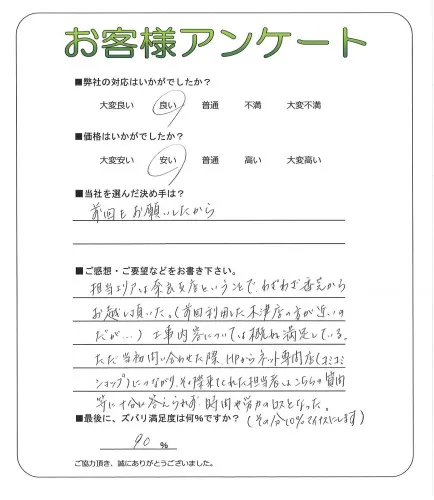 お客様アンケート
■弊社の対応はいかがでしたか?
大変良い 良い 普通 不満 大変不満
■価格はいかがでしたか?
大変安い 安い 普通 高い 大変高い
■当社を選んだ決め手は?
前回もお願いしたから
■ご感想・ご要望などをお書き下さい。
担当エリアは奈良支店ということで、わざわざ香芝から
お越し頂いた。(前回利用した木津店の方が近いの
だが…) 工事内容については概ね満足している。
ただ、当初問い合わせた際、HPからネット専門店(
ショップ)につながり、その際来てくれた担当者はこちらの質問
等に十分に答えられず、時間や労力のロスとなった。
■最後に、ズバリ満足度は何%ですか? (その分10%マイナスにします)
90 %
ご協力頂き、誠にありがとうございました。